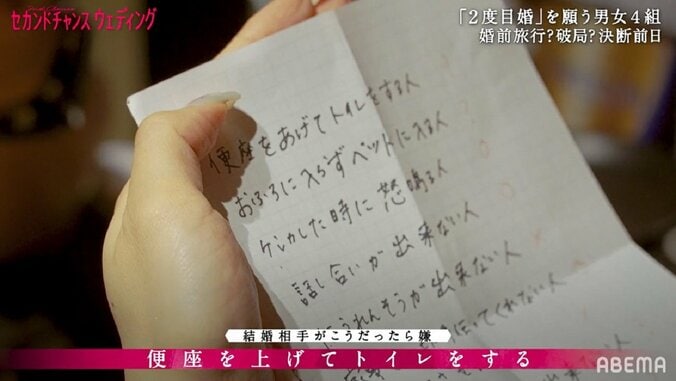 セカンドチャンス ウェディング
「2度目婚」を願う男女4組
婚前旅行?破局?決断前日
便座をあげてトイレをする人
おふろに入らずベットに入る人
ケンカした時に怒鳴る人
話し合いが出来ない人
うれんそうが出来ない人
ってくれない人
出来ない人
結婚相手がこうだったら嫌
便座を上げてトイレをする
ABEMA